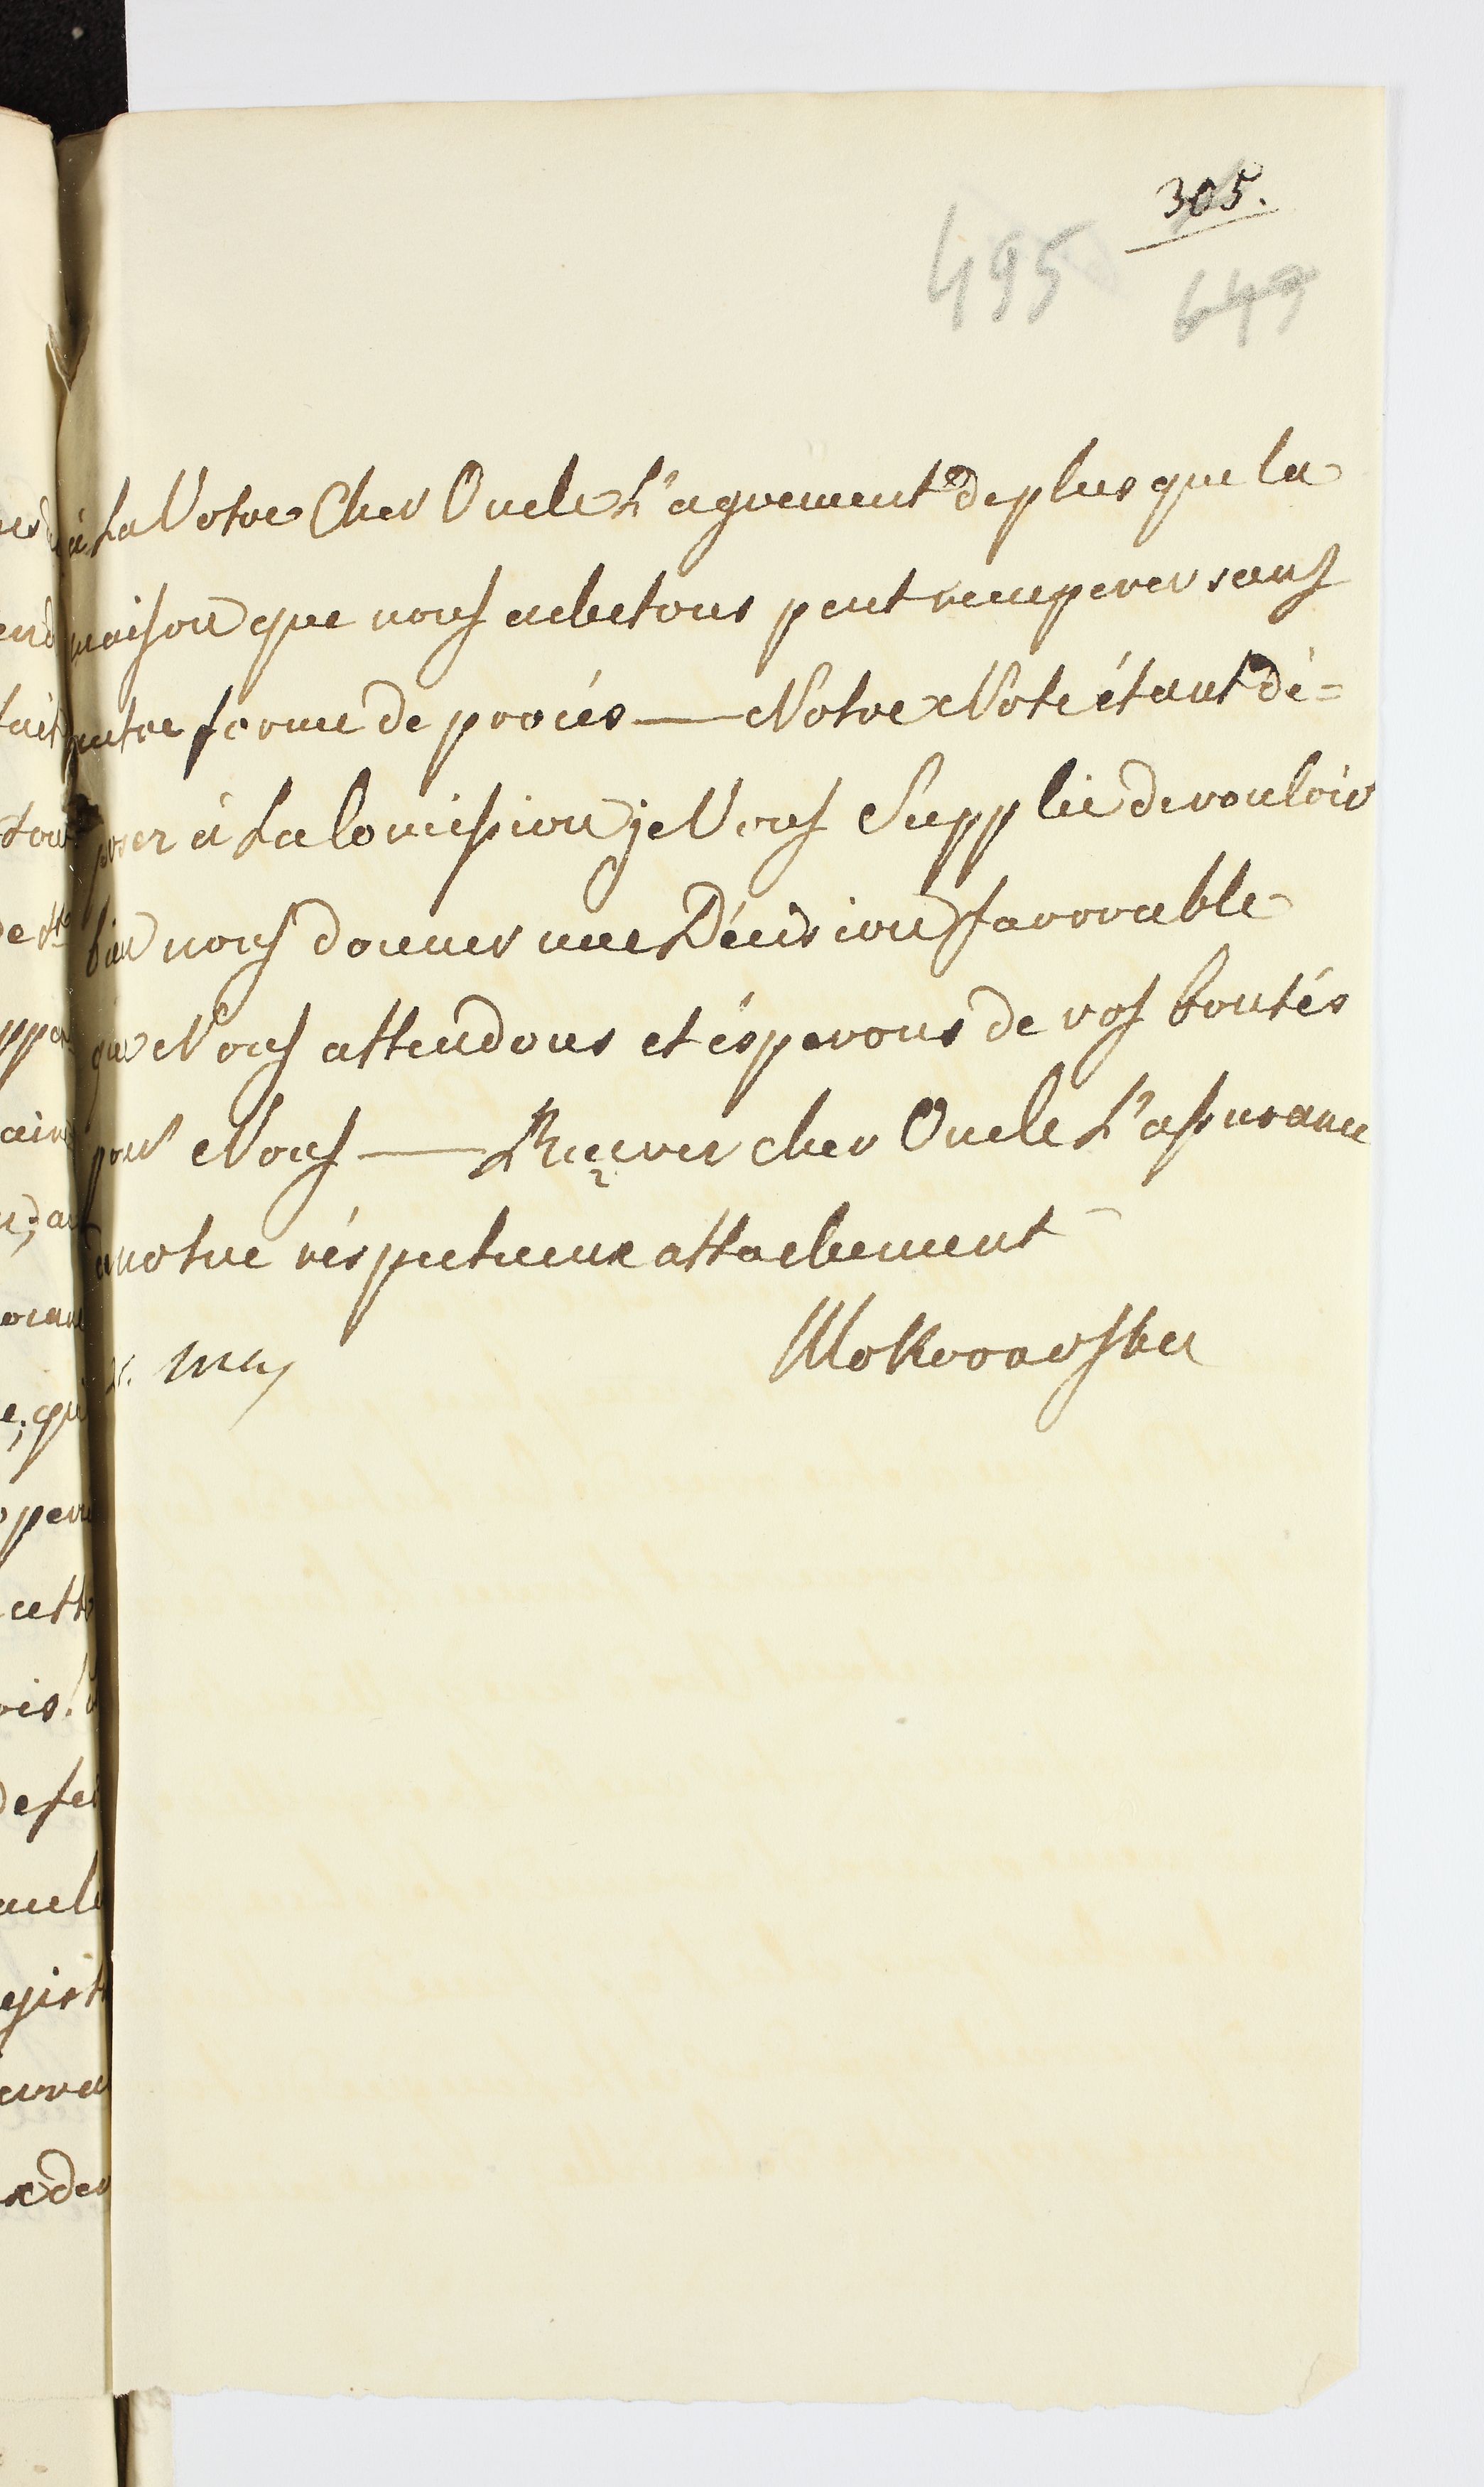 305.
495 649
à La Votre Cher Oncle L'agrement de plus que la
maison que nous achetons peut recuperer sans
autre forme de procés — Notre Note étant dé=
poser à La Comission je Vous Supplie de vouloir
bien nous donner une Décision favorable
que Nous attendons et ésperons de vos bontés
pour Nous — Recever cher Oncle L'assurance
notre réspectueux attachement
Mokronowska
21. may